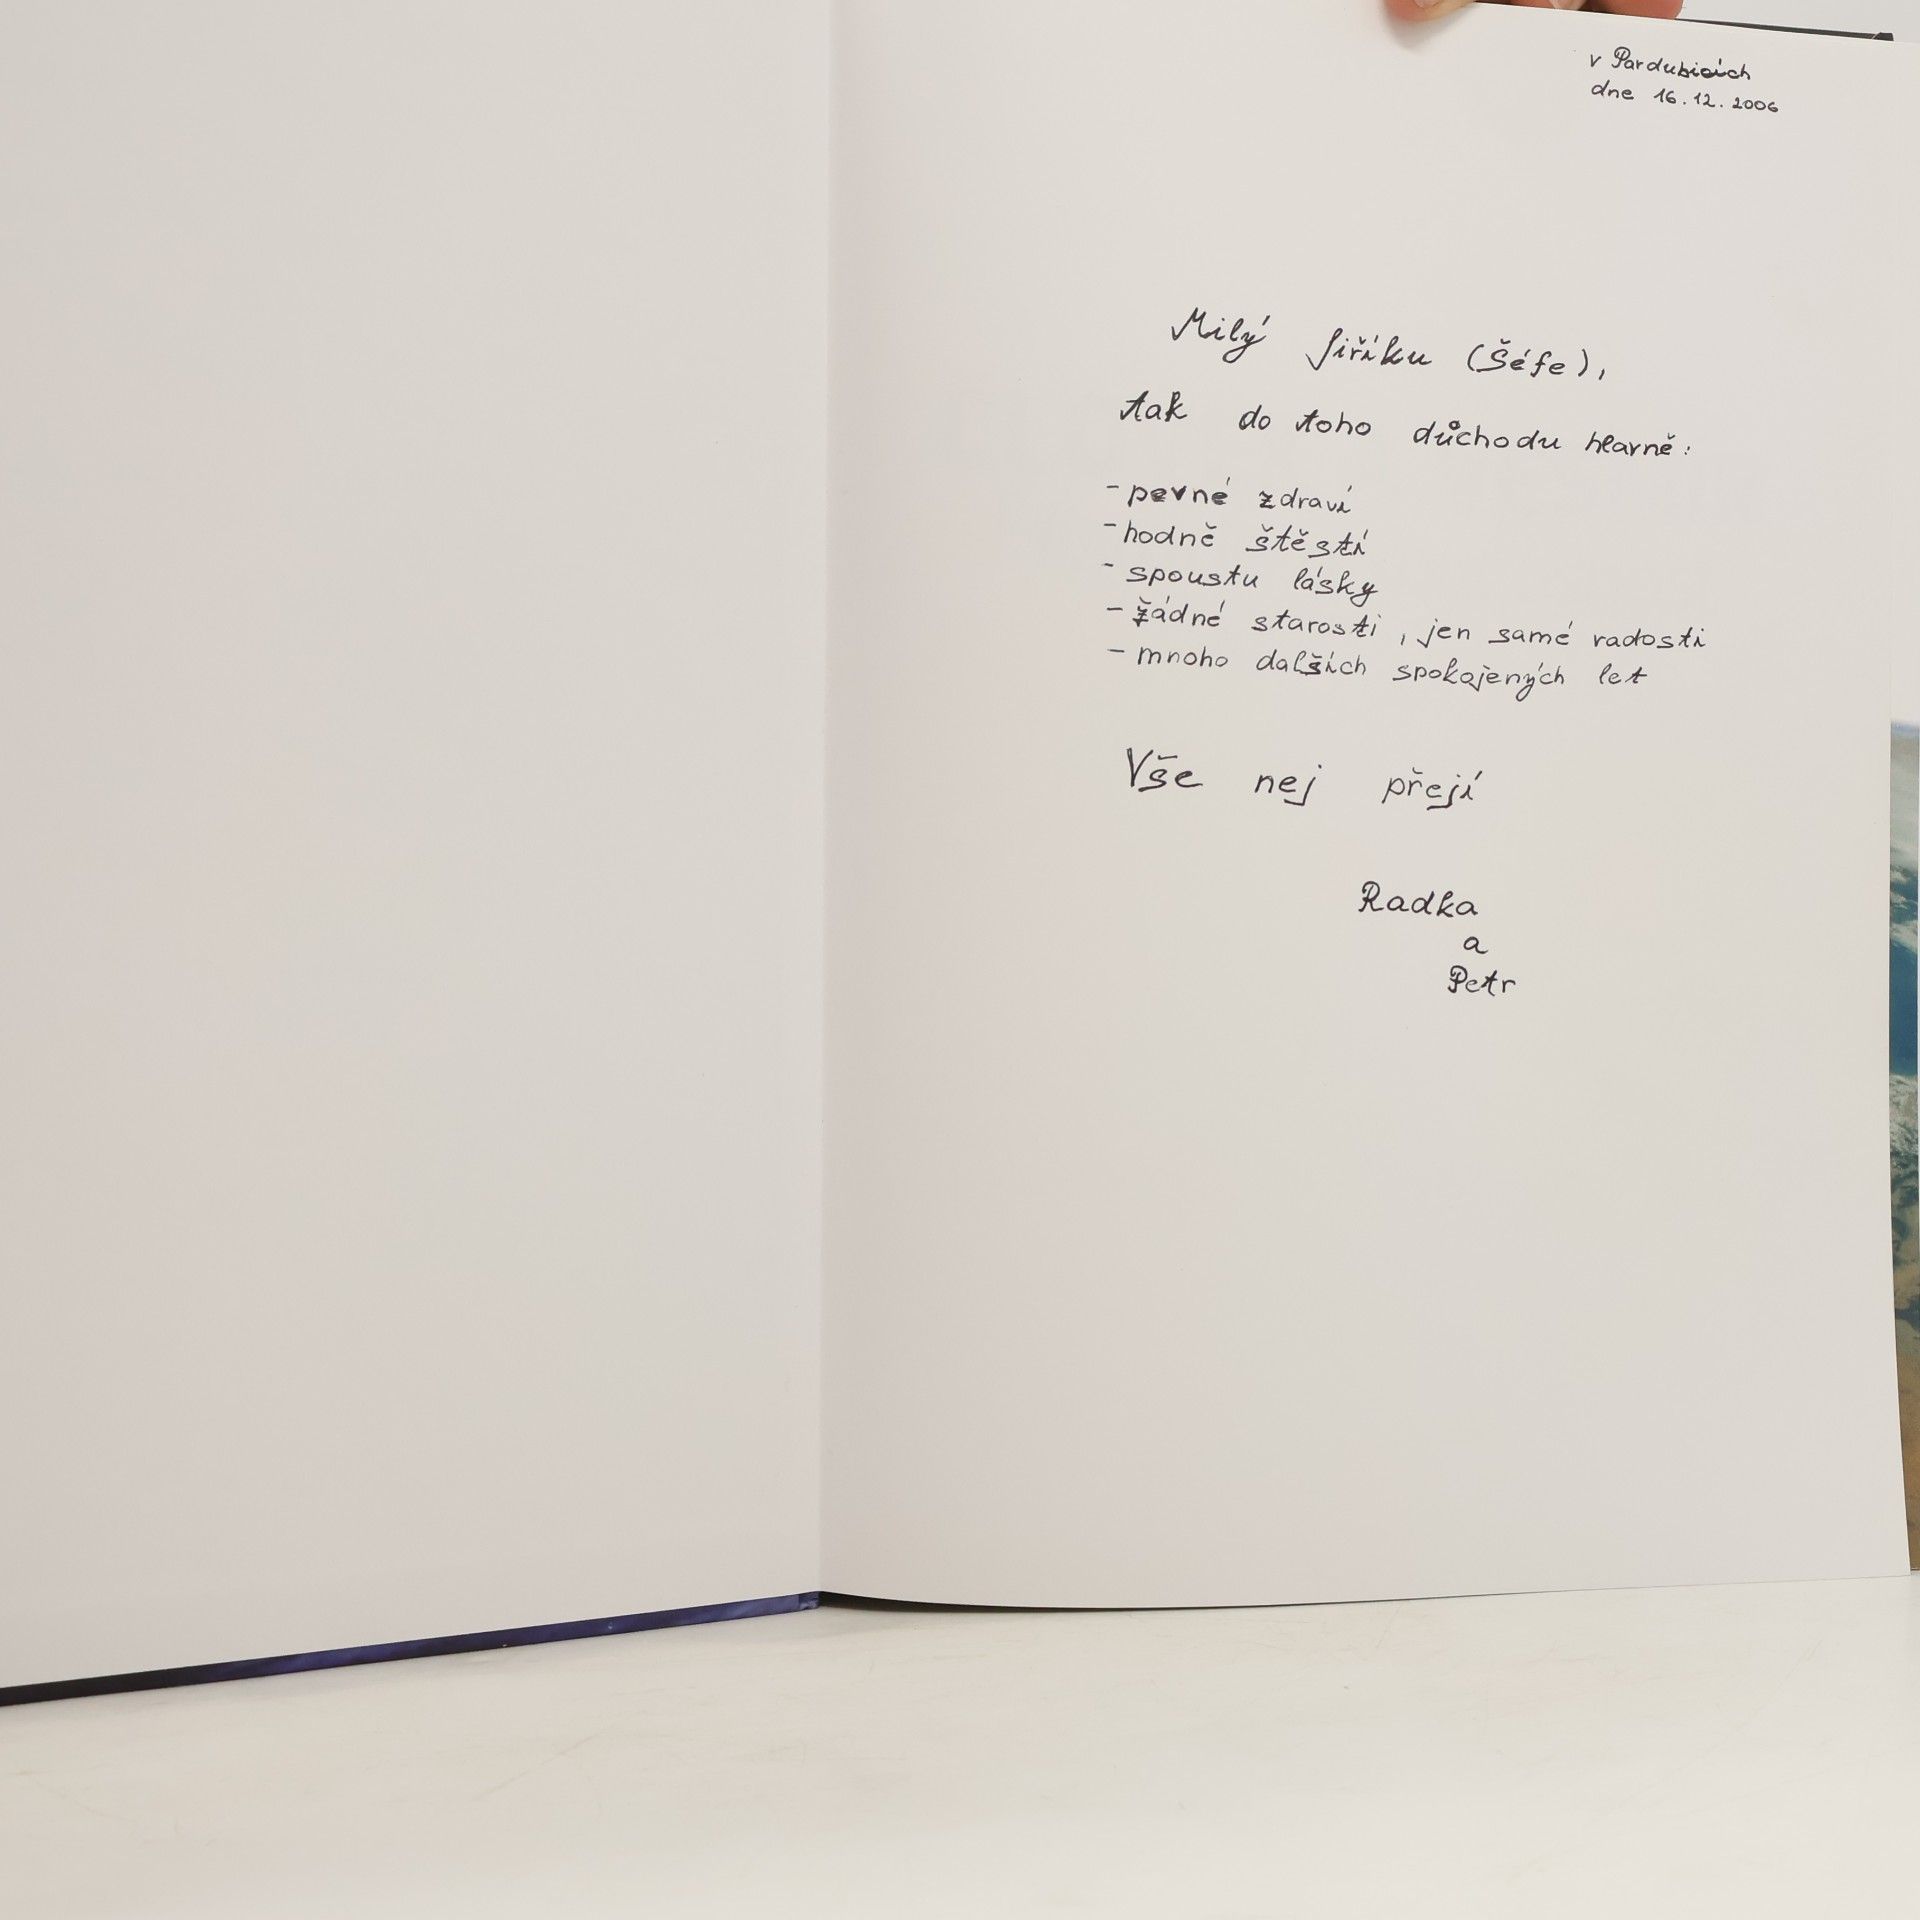 v Pardubicích
dne 16.12.2006
Milý Jiříku (Šéfe),
tak do toho důchodu hlavně:
- pevné zdraví
- hodně štěstí
- spoustu lásky
- žádné starosti, jen samé radosti
- mnoho dalších spokojených let
Vše nej přejí
Radka
a
Petr